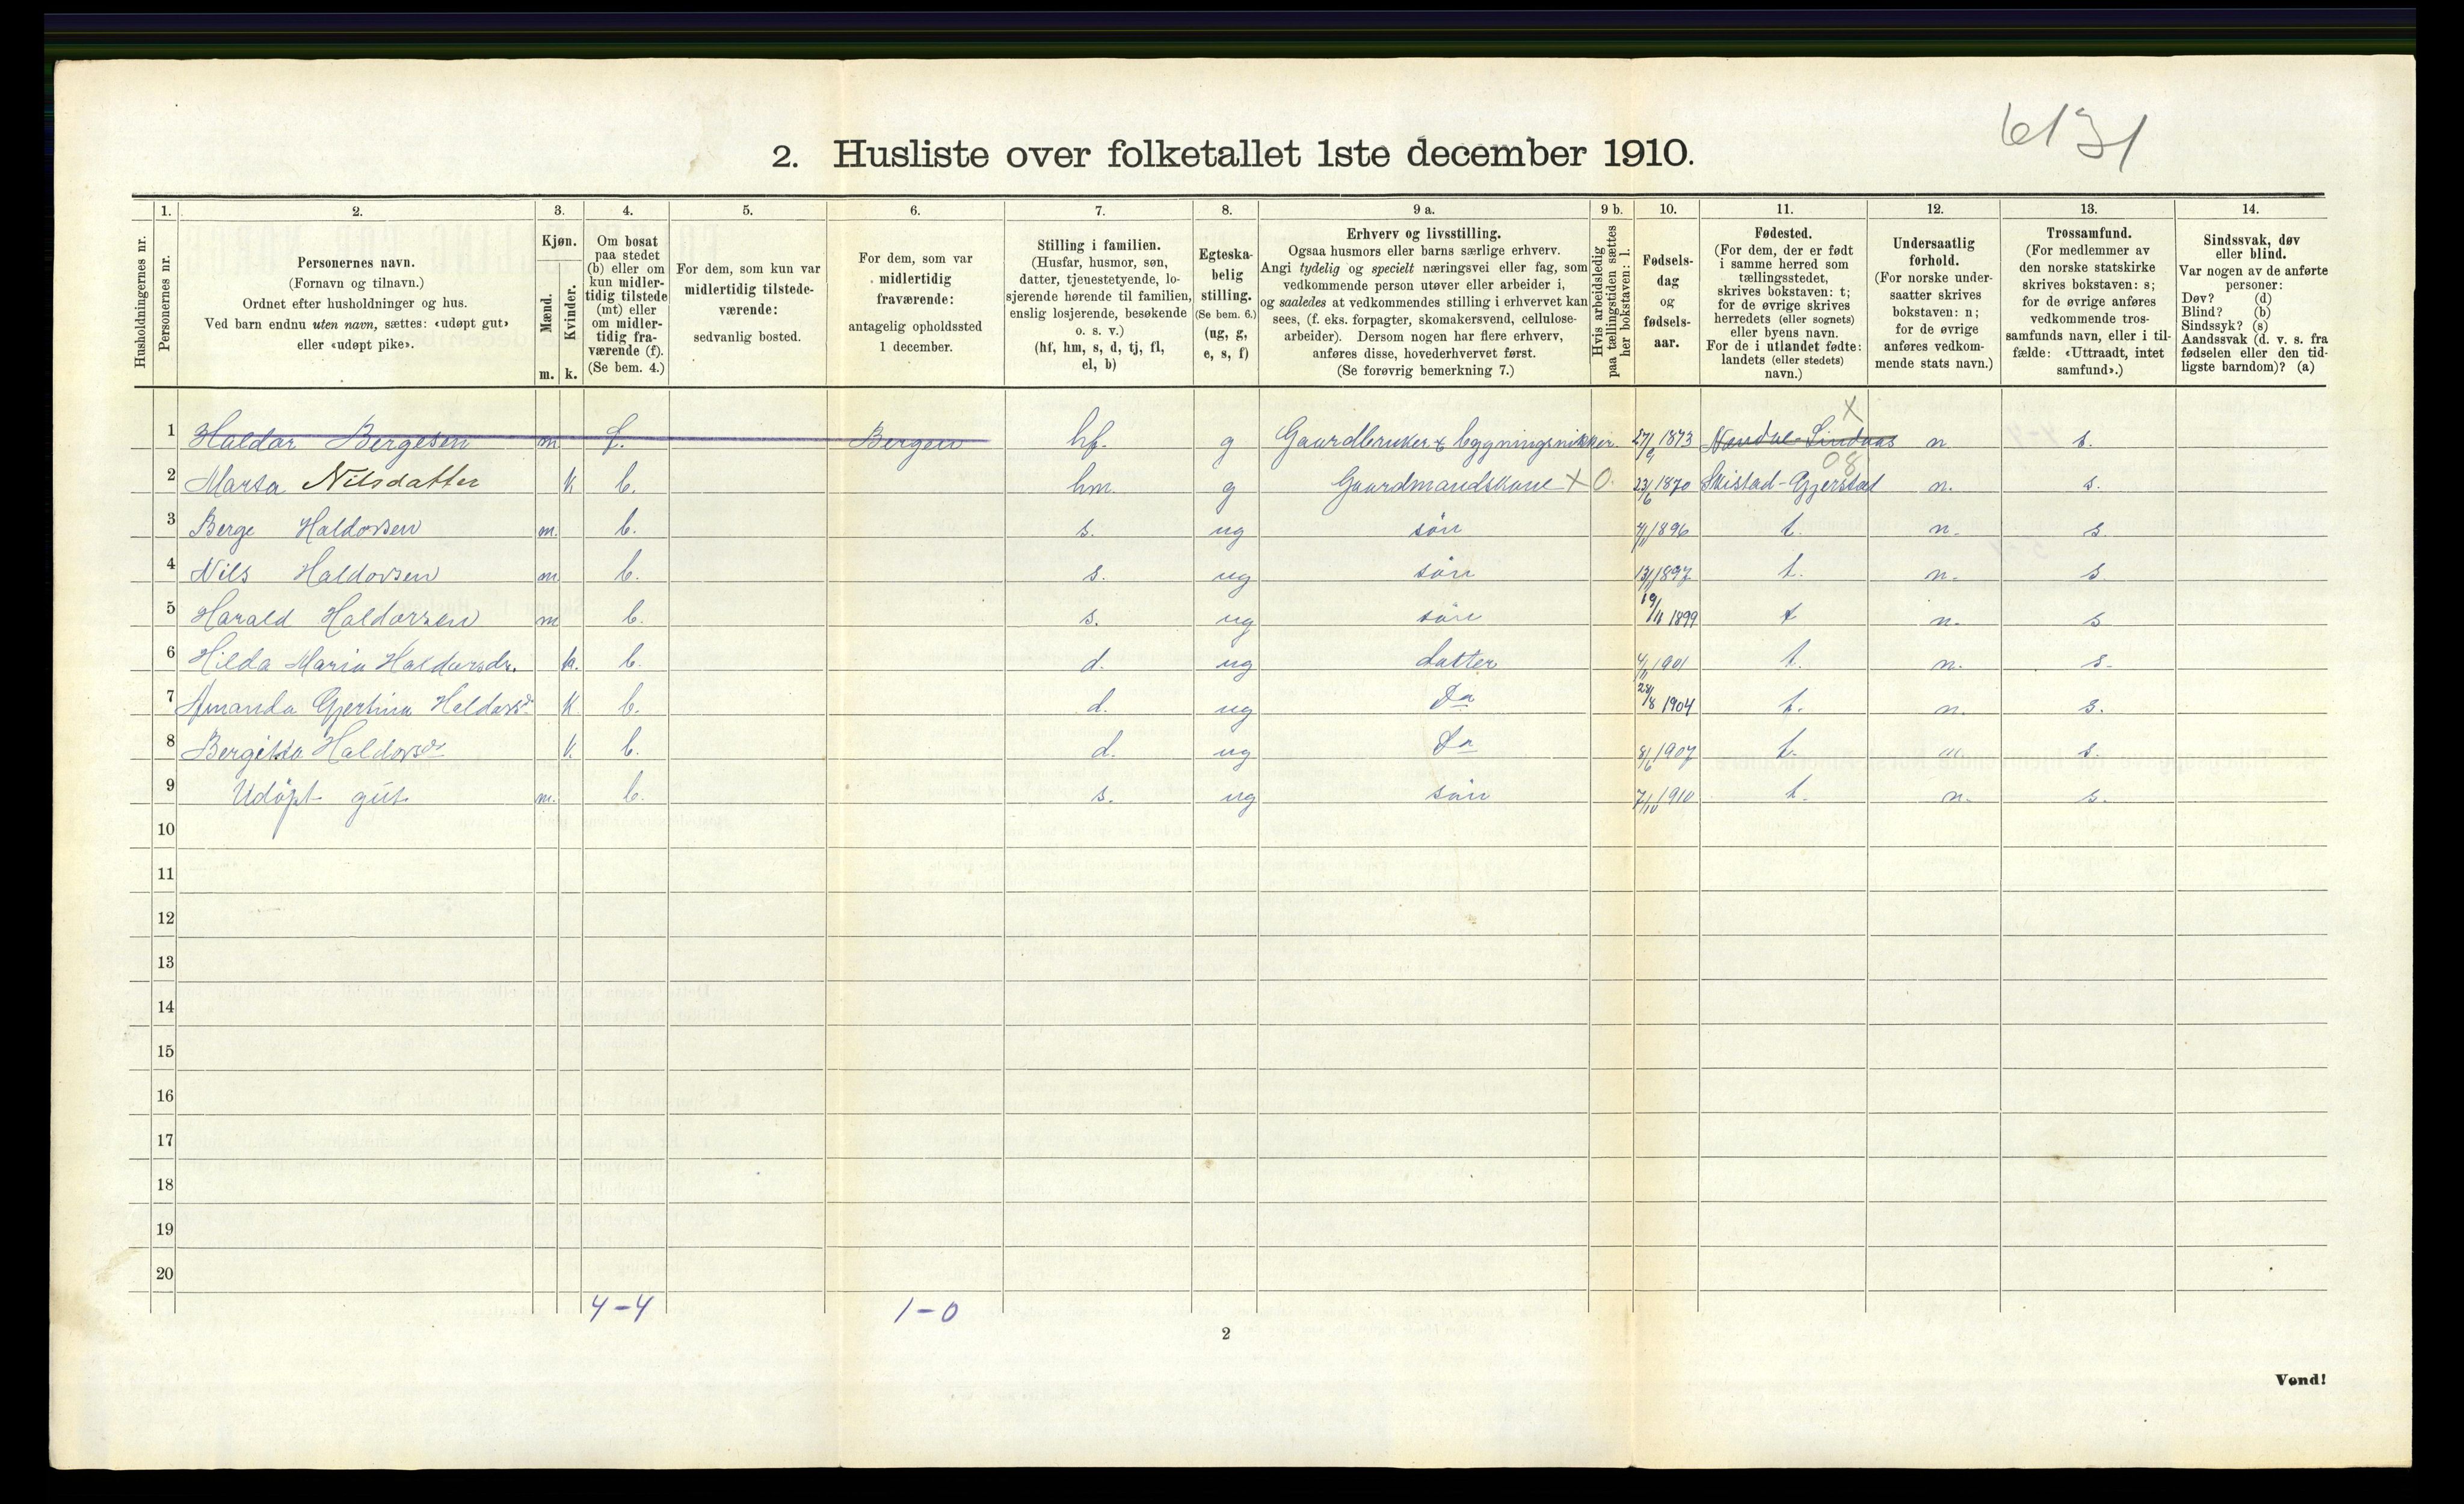 6131
2. Husliste over folketallet 1ste december 1910.
Husholdningernes nr.
1.
Personernes nr.
2.
Personernes navn.
(Fornavn og tilnavn.)
Ordnet efter husholdninger og hus.
Ved barn endnu uten navn, sættes: «udøpt gut»
eller «udøpt pike».
3.
Kjøn.
Mænd.
Kvinder.
m. k.
4.
Om bosat
paa stedet
(b) eller om
kun midler-
tidig tilstede
(mt) eller
om midler-
tidig fra-
værende (f).
(Se bem. 4.)
5.
For dem, som kun var
midlertidig tilstede-
værende:
sedvanlig bosted.
6.
For dem, som var
midlertidig
fraværende:
antagelig opholdssted
1 december.
7.
Stilling i familien.
(Husfar, husmor, søn,
datter, tjenestetyende, lo-
sjerende hørende til familien,
enslig losjerende, besøkende
o. s. v.)
(hf, hm, s, d, tj, fl,
el, b)
8.
Egteska-
belig
stilling.
(Se bem. 6.)
(ug, g,
e, s, f)
9 a.
Erhverv og livsstilling.
Ogsaa husmors eller barns særlige erhverv.
Angi tydelig og specielt næringsvei eller fag, som
vedkommende person utøver eller arbeider i,
og saaledes at vedkommendes stilling i erhvervet kan
sees, (f. eks. forpagter, skomakersvend, cellulose-
arbeider). Dersom nogen har flere erhverv,
anføres disse, hovederhvervet først.
(Se forøvrig bemerkning 7.)
9 b.
Hvis arbeidsledig
paa tællingstiden sættes
her bokstaven: l.
10.
Fødsels-
dag
og
fødsels-
aar.
11.
Fødested.
(For dem, der er født
i samme herred som
tællingsstedet,
skrives bokstaven: t;
for de øvrige skrives
herredets (eller sognets)
eller byens navn.
For de i utlandet fødte:
landets (eller stedets)
navn.)
12.
Undersaatlig
forhold.
(For norske under-
saatter skrives
bokstaven: n;
for de øvrige
anføres vedkom-
mende stats navn.)
13.
Trossamfund.
(For medlemmer av
den norske statskirke
skrives bokstaven: s;
for de øvrige anføres
vedkommende tros-
samfunds navn, eller i til-
fælde: «Uttraadt, intet
samfund».)
14.
Sindssvak, døv
eller blind.
Var nogen av de anførte
personer:
Døv? (d)
Blind? (b)
Sindssyk? (s)
Aandssvak (d. v. s. fra
fødselen eller den tid-
ligste barndom)? (a)
1 Haldor Bergesen m. f. Bergen hf. g Gaardbruker & bygningsnikker. 27/9 1873 Lindaas X n s.
2 Marta Nilsdatter k b. hm. g Gaardmandskone X 0. 23/6 1870 Skistad-Gjerstad 08 n. s.
3 Berge Haldorsen m. b. s. ug søn 1896 t. n. s.
4 Nils Haldorsen m b. s. ug søn 13/11 1897 t. n. s
5 Harald Haldorsen m b. s. ug søn 19/11 1899 t n. s
6 Hilda Maria Haldorsdr. k. b. d. ug datter 1901 t. n. s.
7 Amanda Gjertina Haldorsdr k b. d. ug Do 28/8 1904 t. n. s.
8 Bergitta Haldorsdr k. b. d. ug Do 8/6 1907 t. n s.
9 Udøpt gut. m. b. s. ug søn 7/10 1910 t. n. s.
10
11
12
13
14
15
16
17
18
19
20
4-4 1-0
2
Vend!